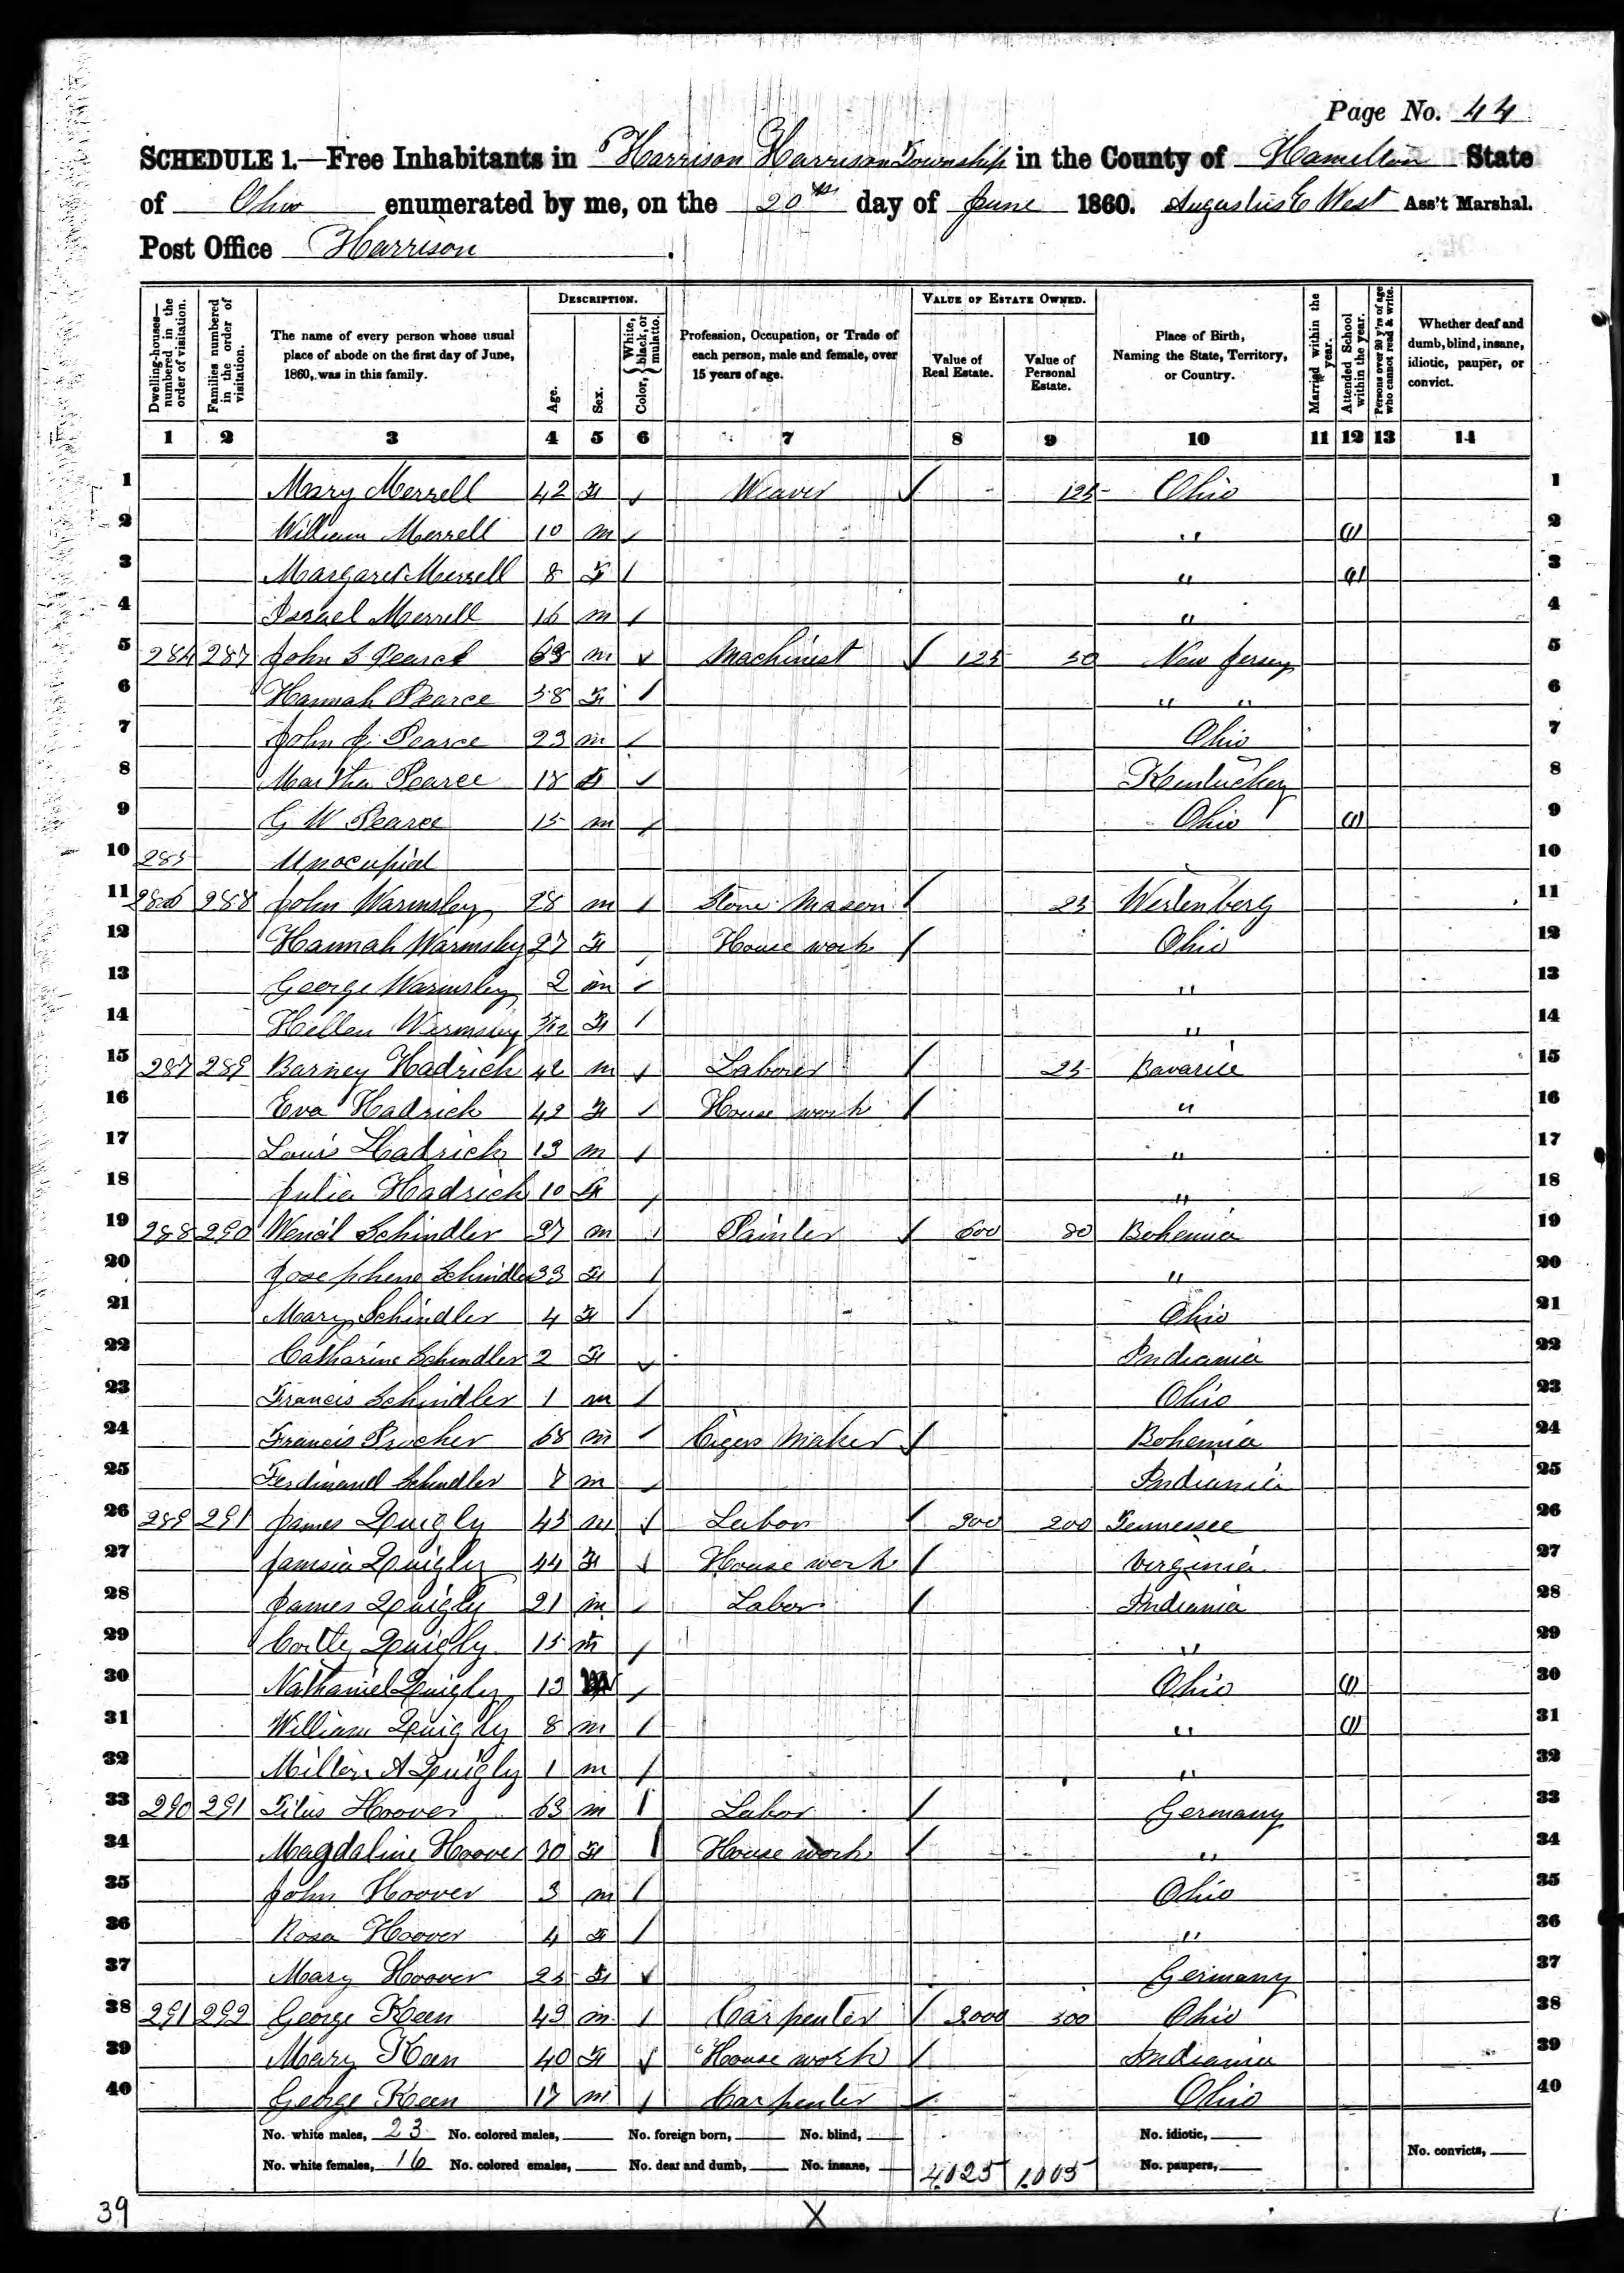 Page No. 44
SCHEDULE 1.—Free Inhabitants in Harrison Harrison Township in the County of Hamelton State
of Ohio enumerated by me, on the 20th day of June 1860. Augustus E West Ass't Marshal.
Post Office Harrison.
Dwelling-houses—numbered in the order of visitation.
Families numbered in the order of visitation.
The name of every person whose usual place of abode on the first day of June, 1860, was in this family.
DESCRIPTION.
Age.
Sex.
Color, White, black, or mulatto.
Profession, Occupation, or Trade of each person, male and female, over 15 years of age.
VALUE OF ESTATE OWNED.
Value of Real Estate.
Value of Personal Estate.
Place of Birth, Naming the State, Territory, or Country.
Married within the year.
Attended School within the year.
Persons over 20 y'rs of age who cannot read & write.
Whether deaf and dumb, blind, insane, idiotic, pauper, or convict.
1 2 3 4 5 6 7 8 9 10 11 12 13 14
1 Mary Merrell 42 F Weaver 125 Ohio 1
2 William Merrell 10 m " 1 2
3 Margaret Merrell 8 F " 1 3
4 Israel Merrell 16 m " 4
5 284 287 John S Pearce 63 m Machinist 125 50 New Jersey 5
6 Hannah Pearce 58 F " " 6
7 John J. Pearce 23 m Ohio 7
8 Martha Pearce 18 F Kentuckey 8
9 G W Pearce 15 m Ohio 1 9
10 285 Unocupied 10
11 286 288 John Warmsley 28 m Stone Mason 25 Wertenberg 11
12 Hannah Warmsley 27 F House work Ohio 12
13 George Warmsley 2 m " 13
14 Hellen Warmsley 5/12 F " 14
15 287 289 Barney Hadrich 42 m Laborer 25 Bavaria 15
16 Eva Hadrich 42 F House work " 16
17 Louis Hadrich 13 m " 17
18 Julia Hadrich 10 F " 18
19 288 290 Wencil Schindler 37 m Painter 600 80 Bohemia 19
20 Josephene Schindler 33 F " 20
21 Mary Schindler 4 F Ohio 21
22 Catharine Schindler 2 F Indiania 22
23 Francis Schindler 1 m Ohio 23
24 Francis 68 m Cigers Maker Bohemia 24
25 Ferdinand Schindler 7 m Indiania 25
26 289 291 James Quigly 45 m Labor 300 200 Tennessee 26
27 Quigly 44 F House work Virginia 27
28 James Quigly 21 m Labor Indiania 28
29 Quigly 15 m " 29
30 Nathaniel Quigly 13 m Ohio 1 30
31 William Quigly 8 m " 1 31
32 Milton A Quigly 1 m " 32
33 290 291 Titus Hoover 63 m Labor Germany 33
34 Magdaline Hoover 30 F House work " 34
35 John Hoover 3 m Ohio 35
36 Rosa Hoover 4 F " 36
37 Mary Hoover 25 F Germany 37
38 291 292 George Keen 43 m Carpenter 3000 500 Ohio 38
39 Mary Keen 40 F House work Indiania 39
40 George Keen 17 m Carpenter Ohio 40
No. white males, 23 No. colored males, No. foreign born, No. blind, No. idiotic,
No. white females, 16 No. colored emales, No. deaf and dumb, No. insane, 4025 1005 No. paupers, No. convicts,
39 X